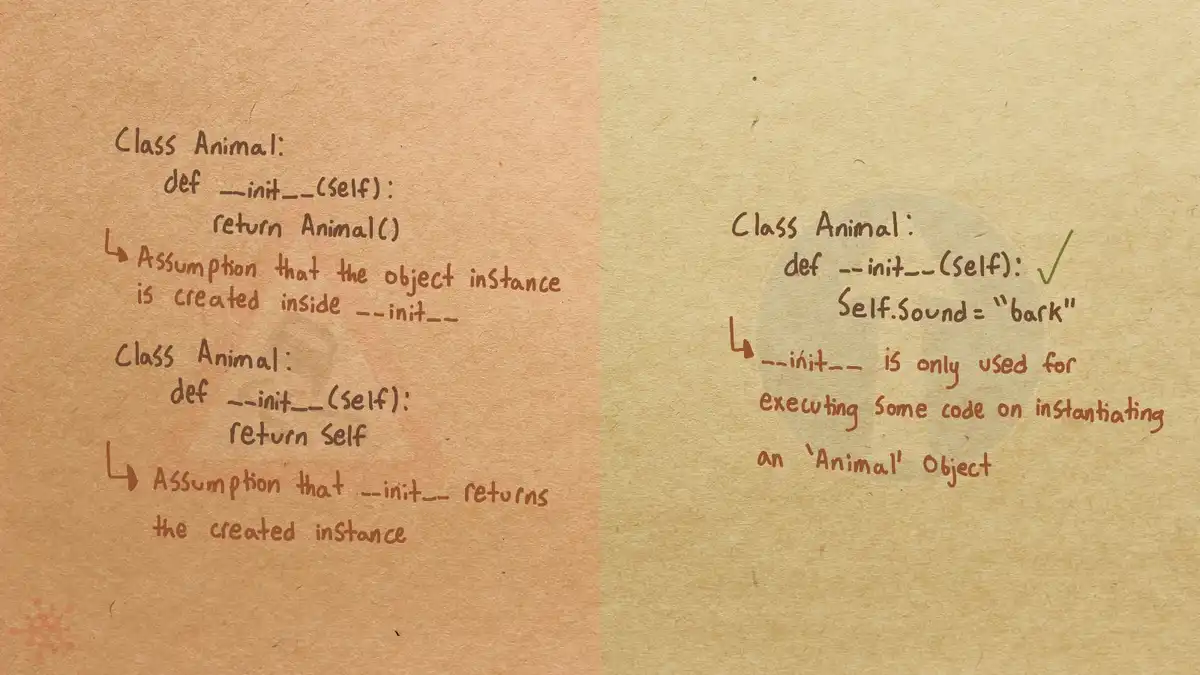 Class Animal:
def __init__(self):
return Animal()
↳ Assumption that the object instance
is created inside __init__
Class Animal:
def __init__(self):
return Self
↳ Assumption that __init__ returns
the created instance
Class Animal:
def __init__(self): ✓
Self.Sound = "bark"
↳ __init__ is only used for
executing Some code on instantiating
an 'Animal' Object